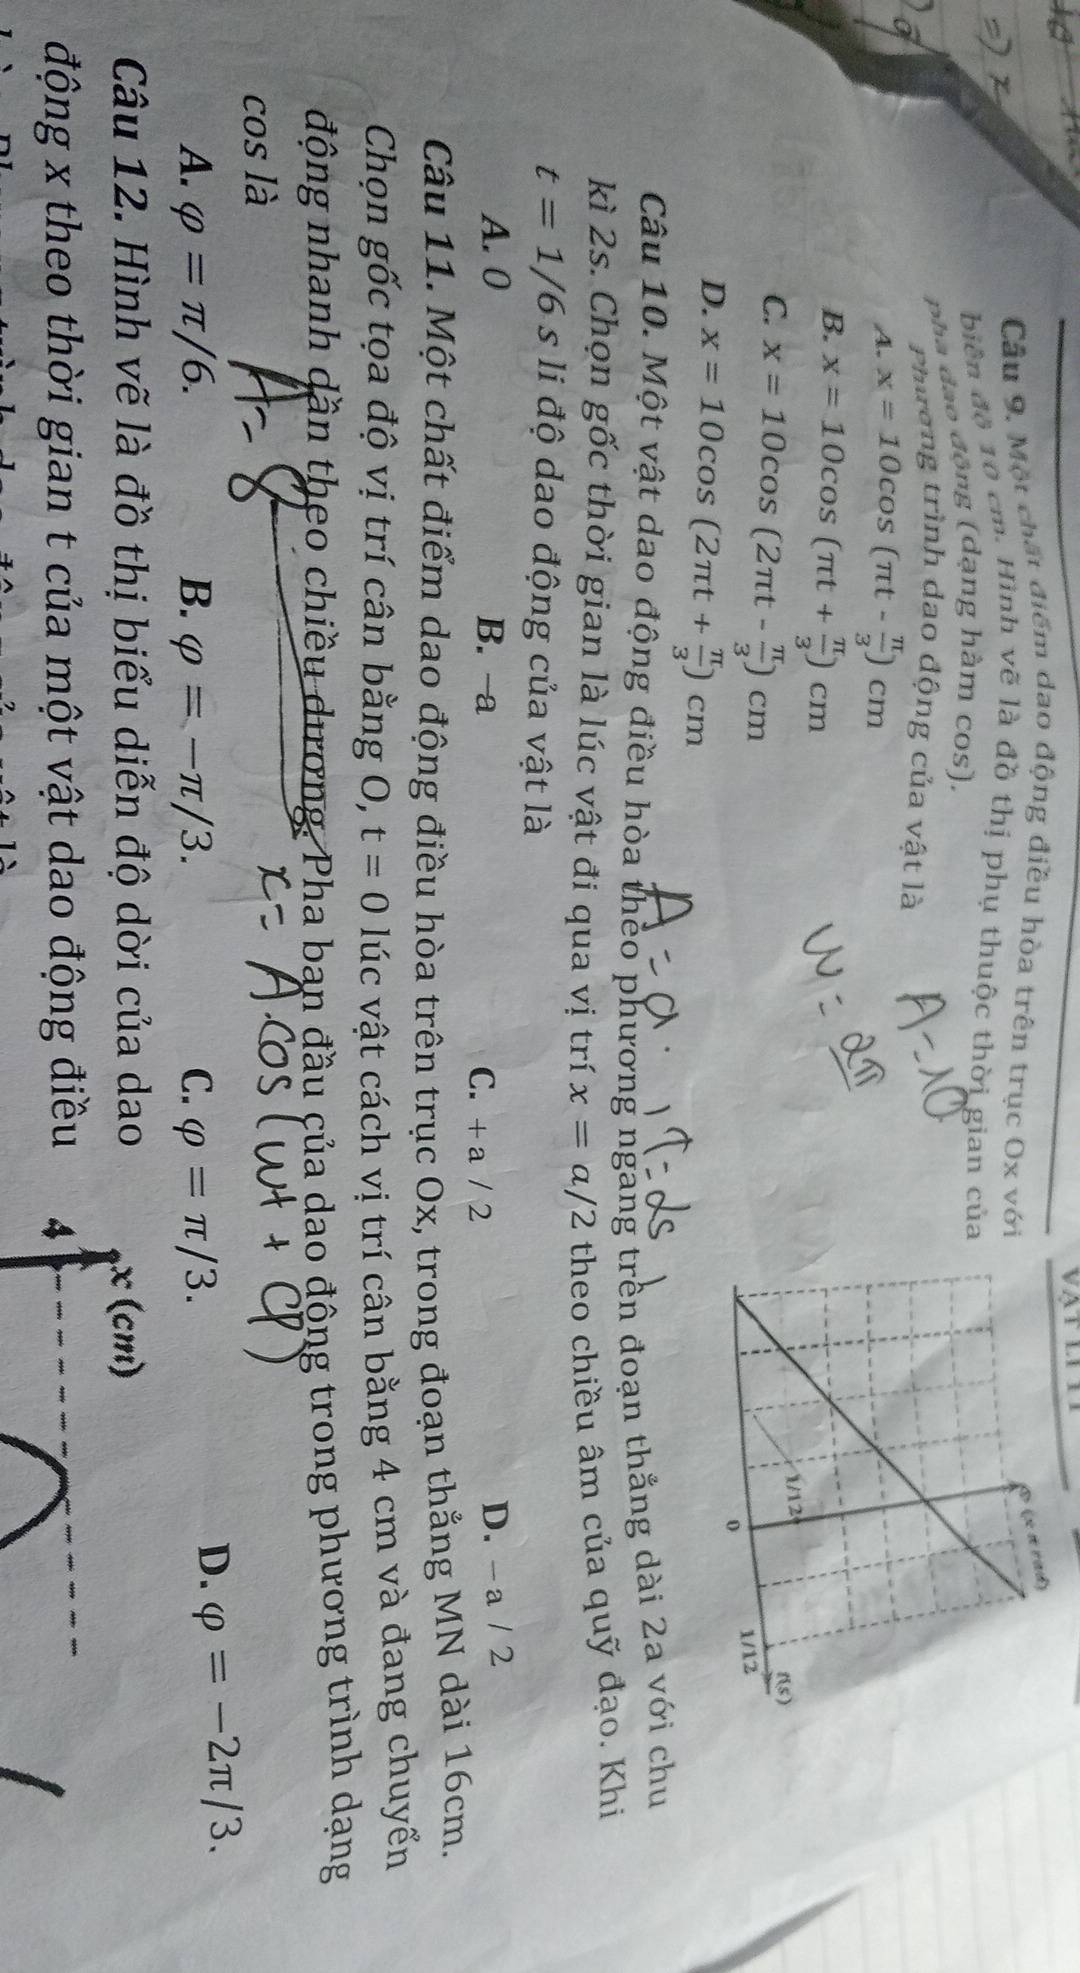 VẬT LÍ 11
Câu 9. Một chất điểm dao động điều hòa trên trục Ox với
biên độ 10 cm. Hình vẽ là đồ thị phụ thuộc thời gian của
pha dao động (dạng hàm cos).
Phương trình dao động của vật là
A. x = 10cos (πt - π/3) cm
B. x = 10cos (πt + π/3) cm
C. x = 10cos (2πt - π/3) cm
D. x = 10cos (2πt + π/3) cm
A = 10
W = 2π
1/12
0
1/12
t(s)
A = a. T = 2s
Câu 10. Một vật dao động điều hòa theo phương ngang trên đoạn thẳng dài 2a với chu
kì 2s. Chọn gốc thời gian là lúc vật đi qua vị trí x = a/2 theo chiều âm của quỹ đạo. Khi
t = 1/6 s li độ dao động của vật là
A. 0 B. -a C. +a / 2 D. -a / 2
Câu 11. Một chất điểm dao động điều hòa trên trục Ox, trong đoạn thẳng MN dài 16cm.
Chọn gốc tọa độ vị trí cân bằng O, t = 0 lúc vật cách vị trí cân bằng 4 cm và đang chuyển
động nhanh dần theo chiều dương. Pha ban đầu của dao động trong phương trình dạng
cos là
A = 8
x = A.cos(wt + φ)
A. φ = π/6. B. φ = -π/3. C. φ = π/3. D. φ = -2π/3.
Câu 12. Hình vẽ là đồ thị biểu diễn độ dời của dao
động x theo thời gian t của một vật dao động điều
x (cm)
4